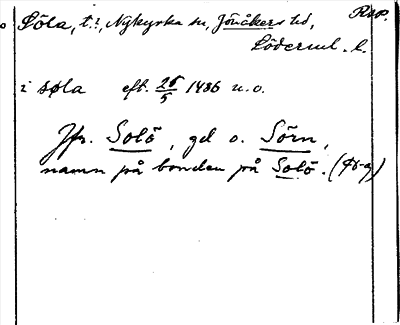 Söla, t.?, Nykyrka sn, Jönåkers hd, Rsp.
Söderml. l.
i søla eft. 25/5 1486 u.o.
Jfr. Solö, gd o. Sörn,
namn på bonden på Solö.